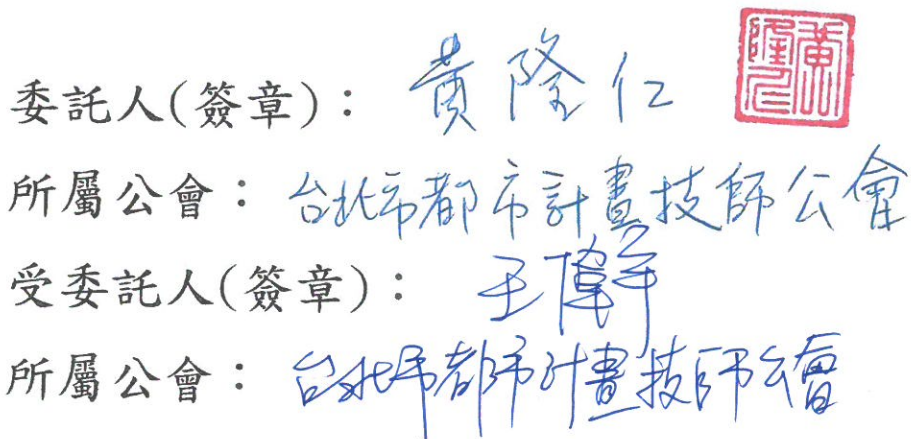 委託人(簽章)： 黃隆仁
所屬公會： 台北市都市計畫技師公會
受委託人(簽章)： 王偉
所屬公會： 台北市都市計畫技師公會